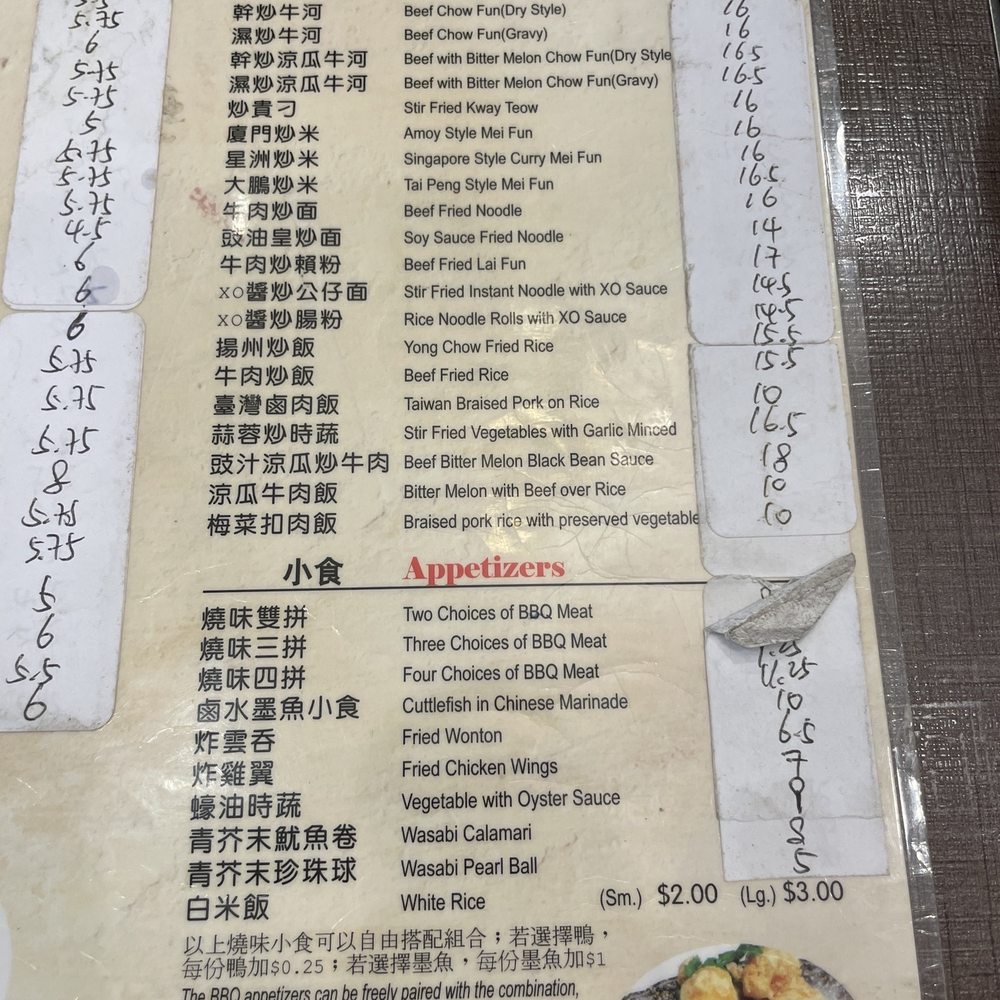 5.75
6
5.75
5.75
5
5.75
5.75
5.75
4.5
6
6.
6
5.75
5.75
5.75
8
5.75
5.75
5
6
5.5
6
幹炒牛河 Beef Chow Fun(Dry Style) 16
濕炒牛河 Beef Chow Fun(Gravy) 16
幹炒涼瓜牛河 Beef with Bitter Melon Chow Fun(Dry Style 16.5
濕炒涼瓜牛河 Beef with Bitter Melon Chow Fun(Gravy) 16.5
炒貴刁 Stir Fried Kway Teow 16
廈門炒米 Amoy Style Mei Fun 16
星洲炒米 Singapore Style Curry Mei Fun 16
大鵬炒米 Tai Peng Style Mei Fun 16.5
牛肉炒面 Beef Fried Noodle 16
豉油皇炒面 Soy Sauce Fried Noodle 14
牛肉炒賴粉 Beef Fried Lai Fun 17
xo醬炒公仔面 Stir Fried Instant Noodle with XO Sauce 14.5
xo醬炒腸粉 Rice Noodle Rolls with XO Sauce 14.5
揚州炒飯 Yong Chow Fried Rice 15.5
牛肉炒飯 Beef Fried Rice 15.5
臺灣鹵肉飯 Taiwan Braised Pork on Rice 10
蒜蓉炒時蔬 Stir Fried Vegetables with Garlic Minced 16.5
豉汁涼瓜炒牛肉 Beef Bitter Melon Black Bean Sauce 18
涼瓜牛肉飯 Bitter Melon with Beef over Rice 10
梅菜扣肉飯 Braised pork rice with preserved vegetable 10
小食 Appetizers
燒味雙拼 Two Choices of BBQ Meat
燒味三拼 Three Choices of BBQ Meat
燒味四拼 Four Choices of BBQ Meat 11.25
鹵水墨魚小食 Cuttlefish in Chinese Marinade 10
炸雲吞 Fried Wonton 6.5
炸雞翼 Fried Chicken Wings 7
蠔油時蔬 Vegetable with Oyster Sauce
青芥末魷魚卷 Wasabi Calamari 8
青芥末珍珠球 Wasabi Pearl Ball 5
白米飯 White Rice (Sm.) $2.00 (Lg.) $3.00
以上燒味小食可以自由搭配組合；若選擇鴨，
每份鴨加$0.25；若選擇墨魚，每份墨魚加$1
The BBQ appetizers can be freely paired with the combination,